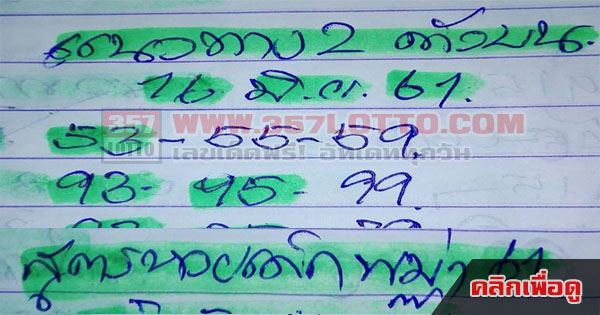 แนวทาง 2 ตัวบน.
16 มิ.ย. 61.
357 WWW.357LOTTO.COM
LOTTO เลขเด็ดฟรี! อัพเดททุกวัน
53 - 55 - 59.
93 - 95 - 99.
สูตรหวยเด็ก พม่า 61
คลิกเพื่อดู